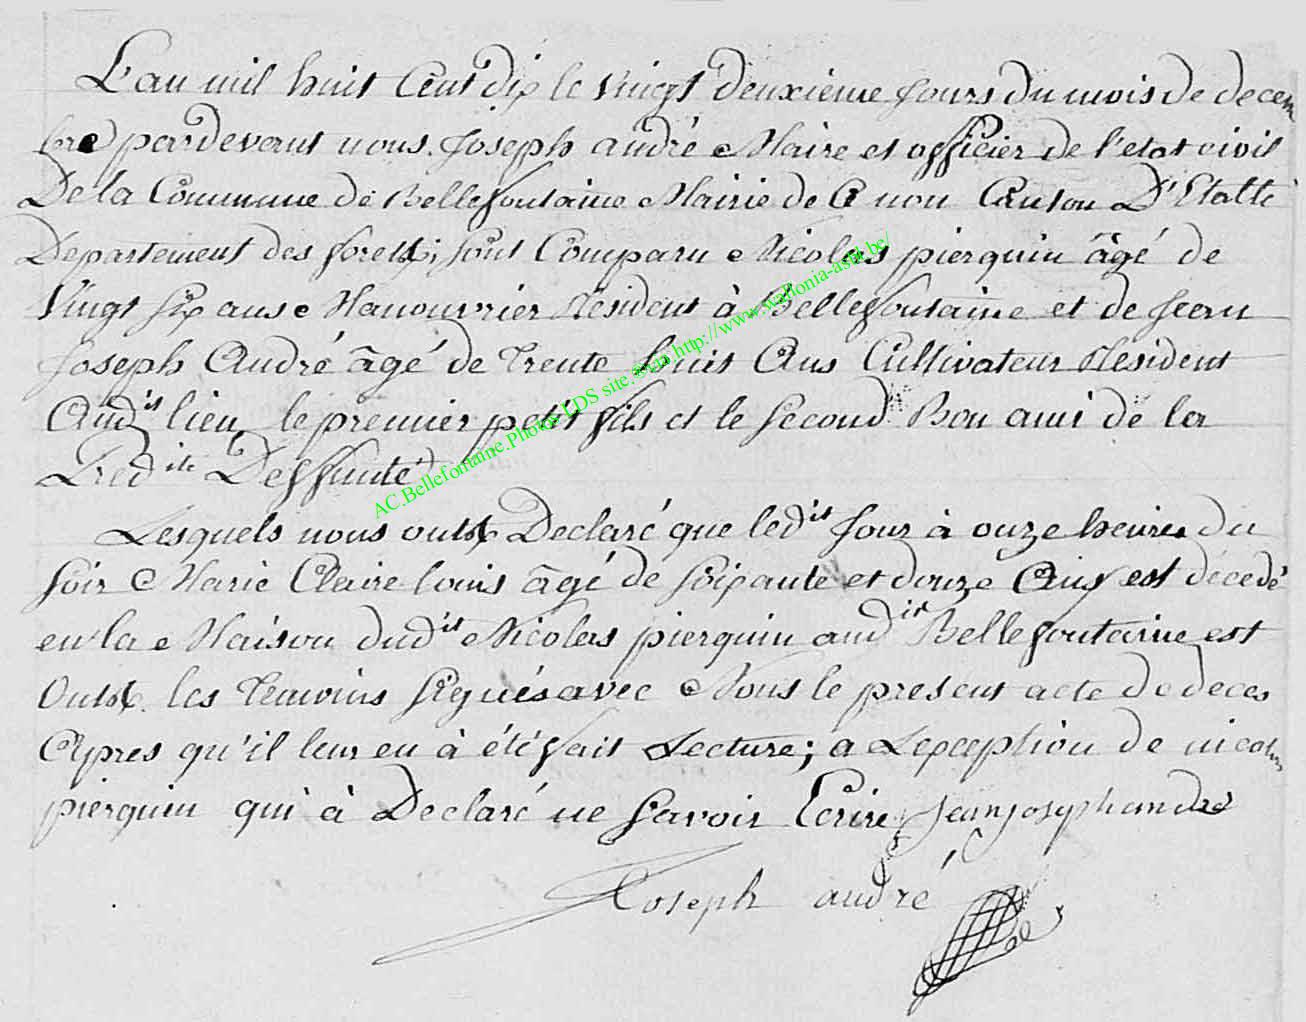 L'an mil huit Cent dix le vingt deuxième jours du mois de decem
bre pardevant nous Joseph andré Maire et officier de l'etat civil
De la Commune de Bellefontaine Mairie de Canton D'Etalle
Departement des forets; sont Comparu Nicolas pierquin âgé de
vingt six ans Manouvrier Résident à Bellefontaine et de Jean
Joseph André âgé de trente huit Ans Cultivateur Résident
Aud.it lieu le premier petit fils et le second Bon ami de la
Pred.ite Deffunte
Lesquels nous ont Declaré que led.it Jour à onze heures du
soir Marie Claire louis âgé de soixante et douze Ans est décedé
en la Maison dud.it Nicolas pierquin aud.it Bellefontaine est
Ont les temoins signés avec Nous le present acte de deces
Apres qu'il leur en à été fait Lecture; a Lexception de nicolas
pierquin qui à Declaré ne savoir Ecrire jean josephandré
Joseph andré
AC.Bellefontaine.Photos LDS site. http://www.wallonia-asbl.be/